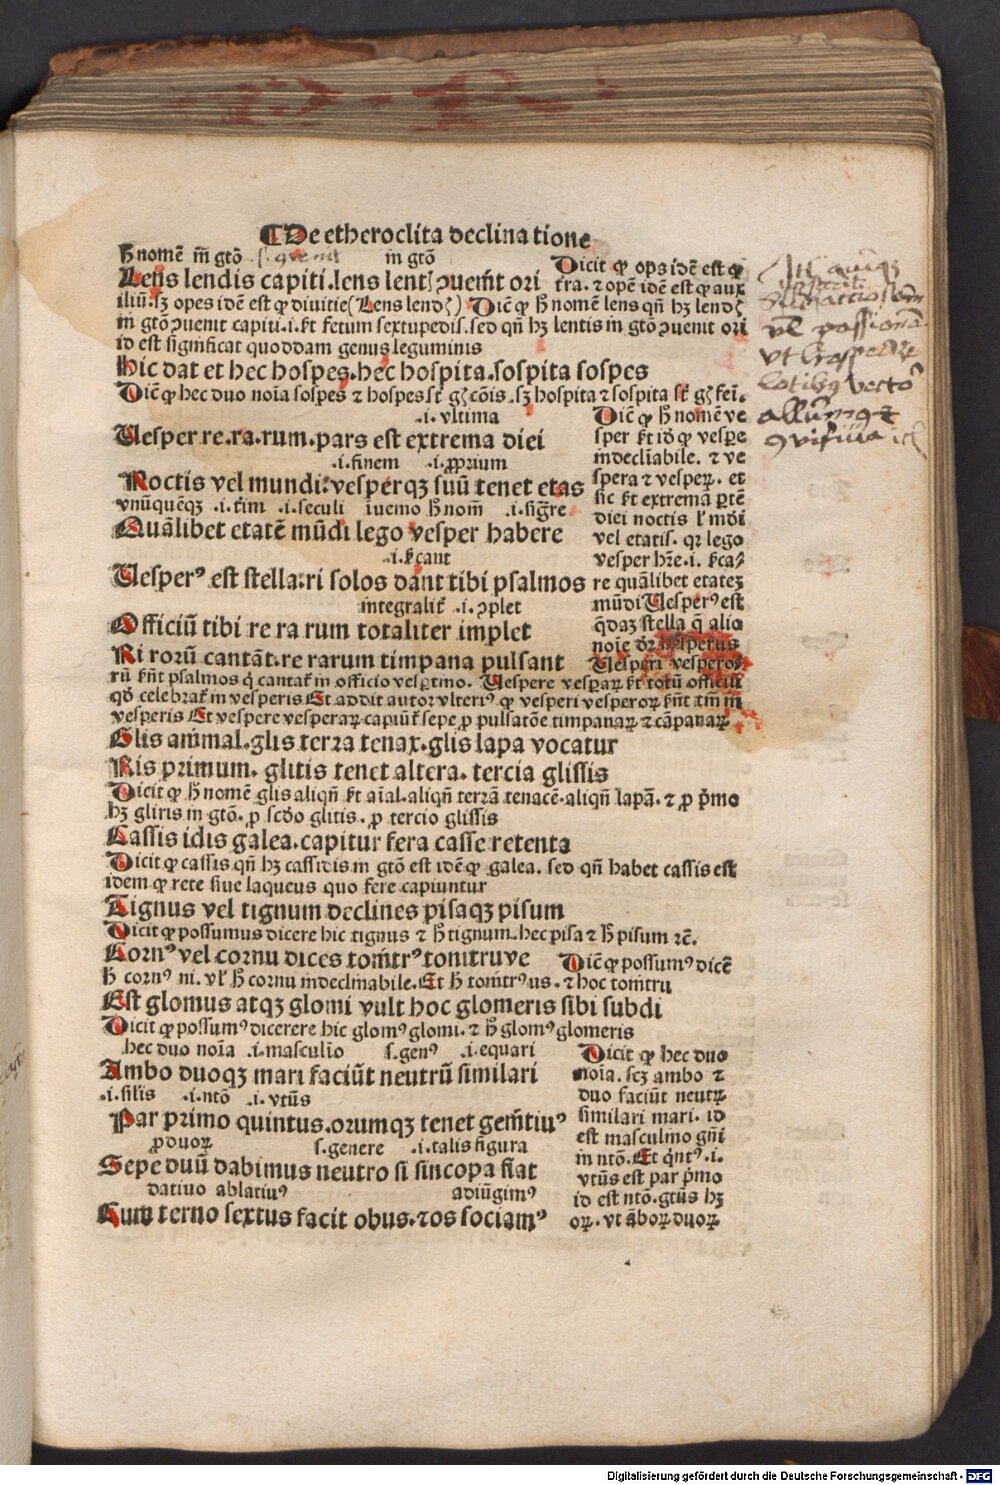 ¶ De etheroclita declinatione
hͦ nomē in gtō in gtō
Lens lendis capiti. lens lentꝭ ꝯuenit ori
Dicit ꝙ ops idē est ꝙ
tr̄a. ⁊ opē idē est ꝙ aux
iliū. sꝫ opes idē est ꝙ diuitie (Lens lendꝭ) Dicit ꝙ hͦ nomen lens qn̄ hꝫ lendꝭ
in gtō ꝯuenit capiti .i. s̄t fetum sextupedis. sed qn̄ hꝫ lentis in gtō ꝯuenit ori
id est significat quoddam genus leguminis
Hic dat et hec hospes. hec hospita. sospita sospes
Dicit ꝙ hec duo noīa sospes ⁊ hospes s̄t gꝭ cōis. sꝫ hospita ⁊ sospita s̄t gꝭ fei.
.i. vltima
Vesper re. ra. rum. pars est extrema diei
.i. finem .i. ꝓprium
Noctis vel mundi: vesperqꝫ suū tenet etas
vnūquēqꝫ .i. tīm .i. seculi inuemo hͦ nom̄ .i. siḡre
Quālibet etatē mūdi lego vesper habere
.i. s̄cant
Vesperꝰ est stella. ri solos dant tibi psalmos
integralit̄ .i. ꝯplet
Officiū tibi re ra rum totaliter implet
Ri rorū cantāt. re rarum timpana pulsant
Dicit ꝙ hͦ nomen ve
sper s̄t id ꝙ vespe
indeclīabile. ⁊ ve
spera ⁊ vesperꝝ. et
sic s̄t extremā ꝑtē
diei noctis l' mūdi
vel etatis. qꝛ lego
vesper hr̄e .i. s̄ca
re quālibet etatez
mūdi Vesperꝰ est
q̄daꝫ stella q̄ alio
noīe dr̄ hesperus
Vesperi vesperoꝝ
rū s̄nt psalmos q̄ cantat̄ in officio vesꝑtino. Vespere vesꝑaꝝ s̄t totū officiū
qd̄ celebrat̄ in vesperis Et addit autor vlteriꝰ ꝙ vesperi vesperoꝝ s̄nt tm̄ in
vesperis Et vespere vesperaꝝ capiūt̄ sepe ꝓ pulsatōe timpanaꝝ ⁊ cāpanaꝝ
Glis animal. glis terra tenax. glis lapa vocatur
Ris primum. glitis tenet altera. tercia glissis
Dicit ꝙ hͦ nomē glis aliqn̄ s̄t aīal. aliqn̄ terrā tenacē. aliqn̄ lapā. ⁊ ꝓ pͥmo
hꝫ gliris in gtō. ꝓ scd̄o glitis. ꝓ tercio glissis
Cassis idis galea. capitur fera casse retenta
Dicit ꝙ cassis qn̄ hꝫ cassidis in gtō est idē ꝙ galea. sed qn̄ habet cassis est
idem ꝙ rete siue laqueus quo fere capiuntur
Tignus vel tignum declines pisaqꝫ pisum
Dicit ꝙ possumus dicere hic tignus ⁊ hͦ tignum. hec pisa ⁊ hͦ pisum ⁊c̄.
Cornꝰ vel cornu dices tonitrꝰ tonitruve
Dicit ꝙ possumꝰ dicē
hͦ cornꝰ ni. vl' hͦ cornu indeclinabile. Et hͦ tonitrꝰ us. ⁊ hoc tonitru
Est glomus atqꝫ glomi vult hoc glomeris sibi subdi
Dicit ꝙ possumꝰ dicerere hic glomꝰ glomi. ⁊ hͦ glomꝰ glomeris
hec duo noīa .i. masculīo s. genꝰ .i. equari
Ambo duoqꝫ mari faciūt neutrū similari
.i. silis .i. ntō .i. vtūs
Par primo quintus. orumqꝫ tenet genitiuꝰ
ꝓ duoꝝ s. genere .i. talis figura
Sepe duū dabimus neutro si sincopa fiat
datiuo ablatiuꝰ adiūgimꝰ
Cum terno sextus facit obus. ⁊ os sociamꝰ
Dicit ꝙ hec duo
noīa. scꝫ ambo ⁊
duo faciūt neutꝝ
similari mari. id
est masculino gn̄i
in ntō. Et q̄ntꝰ .i.
vtūs est par pͥmo
id est ntō. gtūs hꝫ
oꝝ. vt āboꝝ duoꝝ
Digitalisierung gefördert durch die Deutsche Forschungsgemeinschaft - DFG